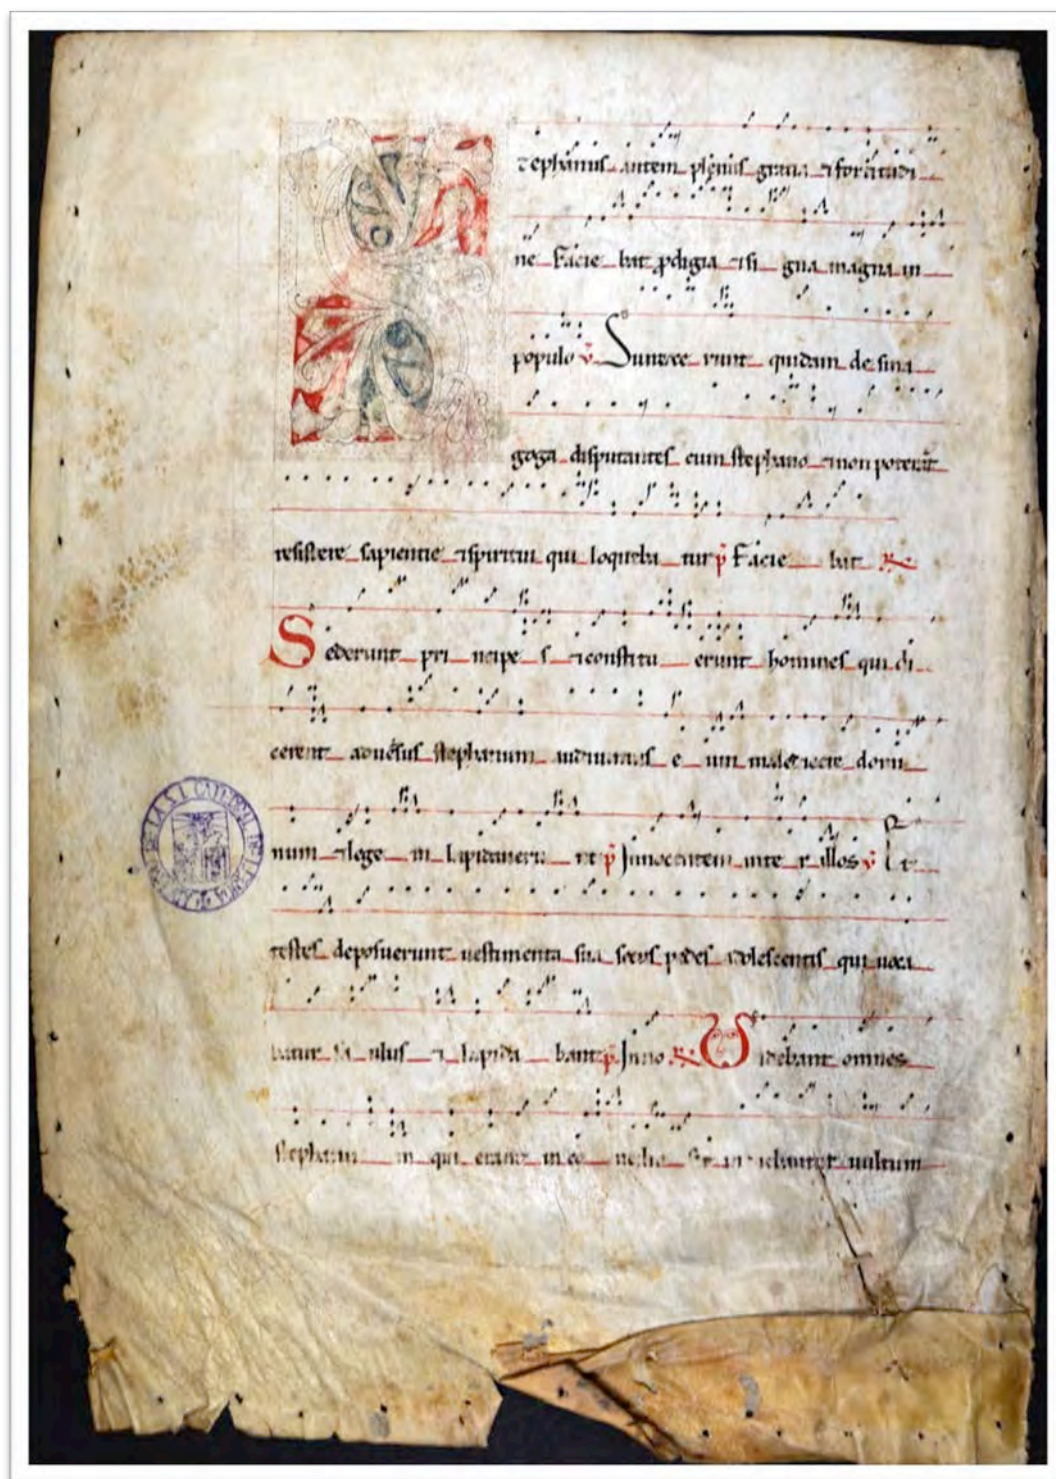 Stephanus autem plenus gratia ⁊ fortitudi
ne Facie bat prodigia ⁊ si gna magna in
populo v̄ Surrexe runt quidam de sina
goga disputantes cum stephano ⁊ non poterāt
resistere sapientie ⁊ spiritui qui loqueba tur p̄ Facie bat
Sederunt pri ncipe s ⁊ constitu erunt homines qui di
cerent adversus stephanum audivimus e um
num ⁊ lege m lapidaveru nt p̄ Innocentem inte r illos v̄ Et
testes deposuerunt vestimenta sua secus pedes adolescentis qui voca
batur sa ulus ⁊ lapida bant p̄ Inno Videbant omnes
stephanum qui erant in co ncilio vultum